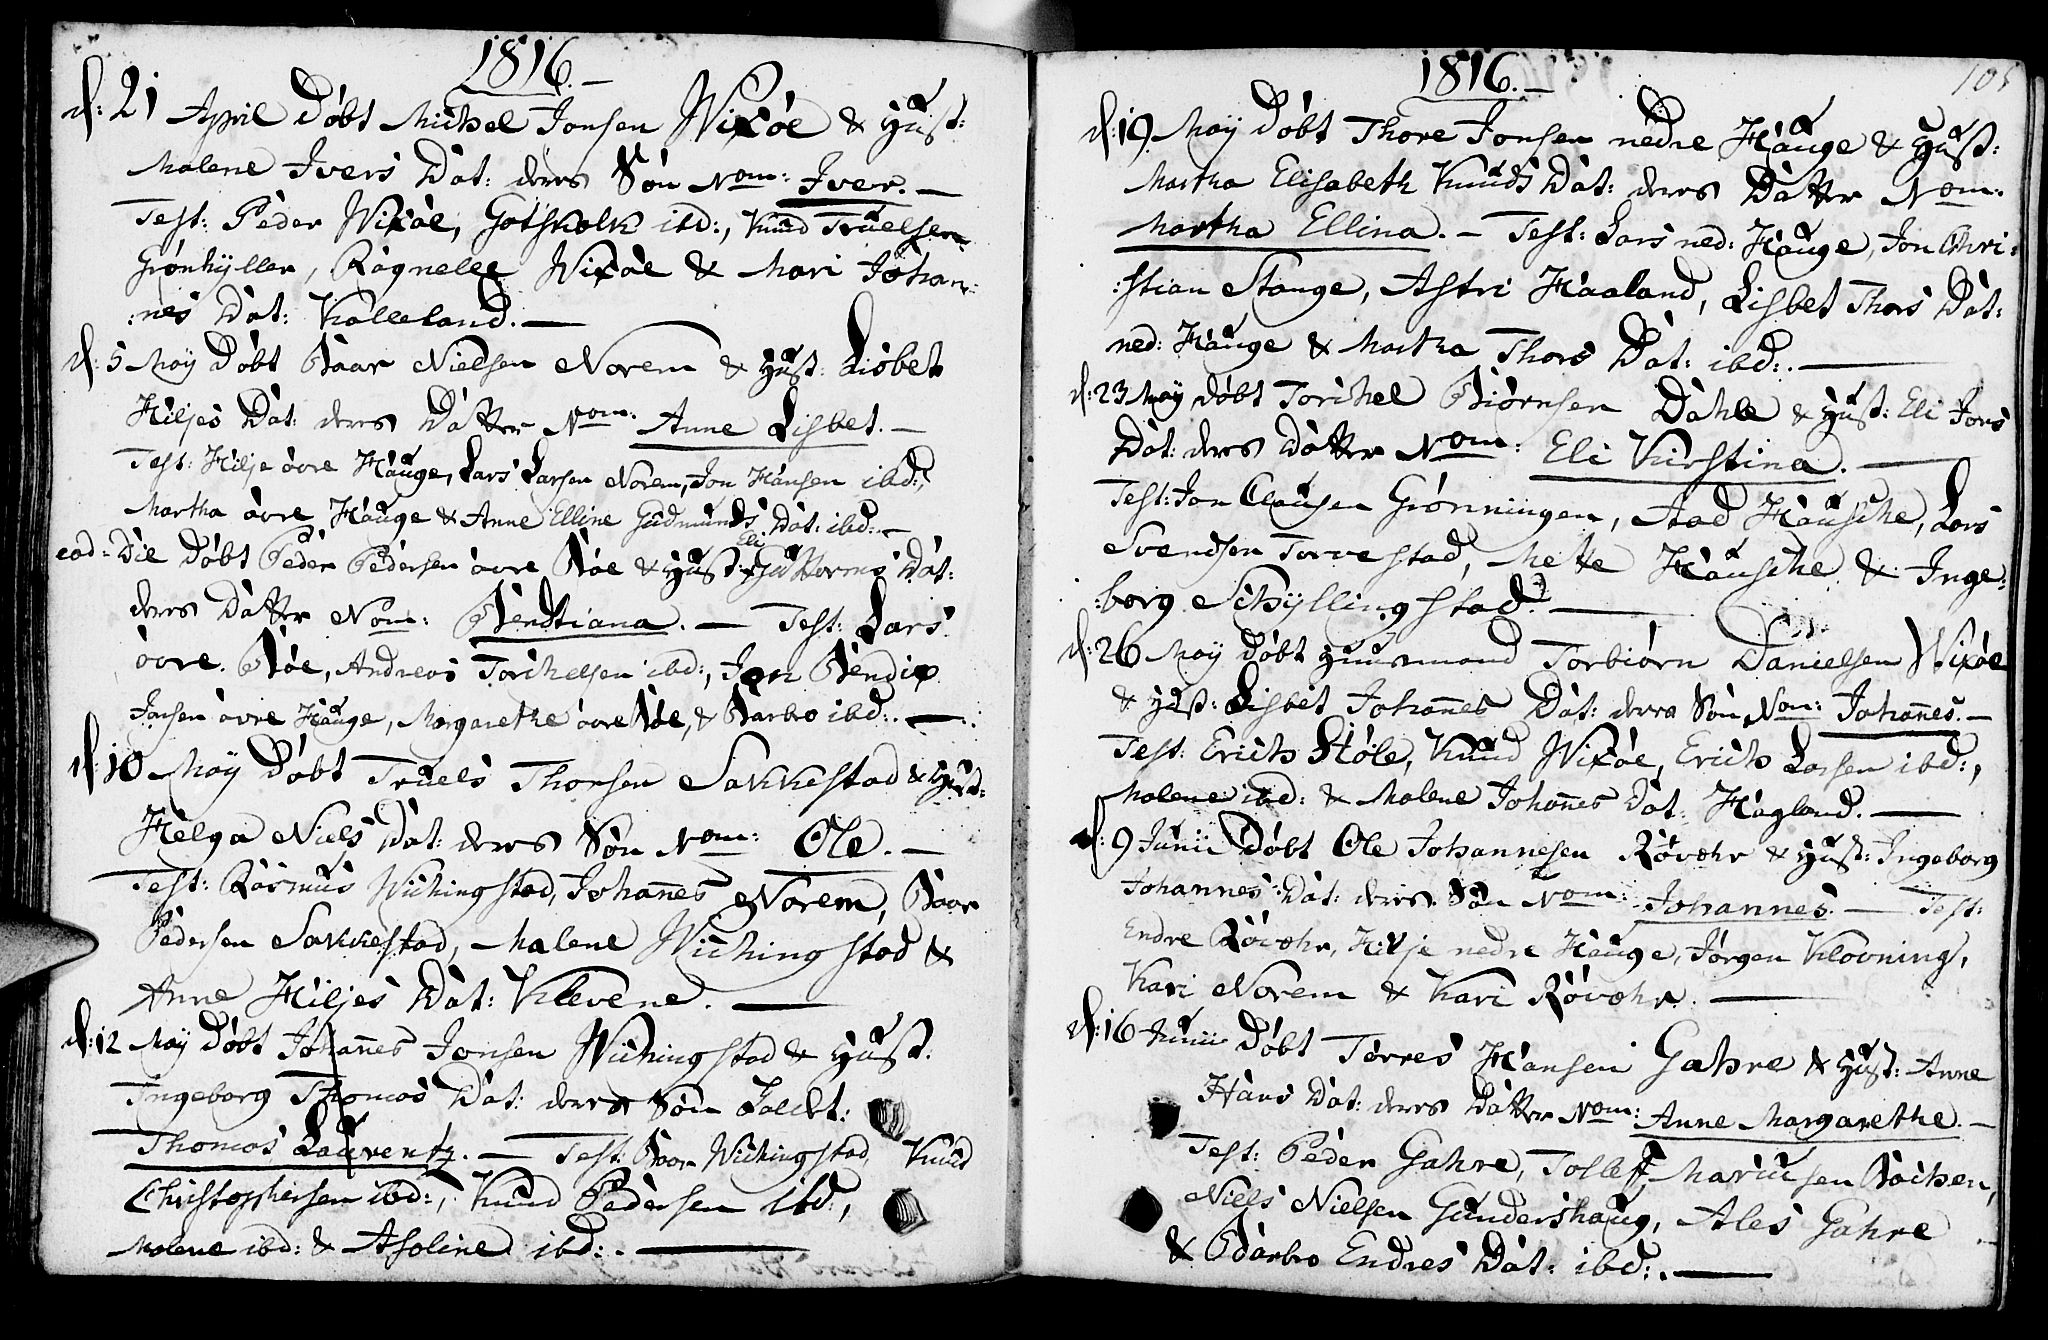 1816.
d: 21 April Døbt Michel Jonsen Wixøe & Hust:
Malene Ivers Dat: deres Søn Nom: Iver. —
Test: Peder Wixøe, Gotskolk ibd:, Knud Truelsen
Grønhyller, Ragnele Wixøe & Mari Johan:
:nes Dat: Kalleland. —
d: 5 May Døbt Baar Nielsen Norem & Hust: Lisbet
Hiljes Dat: deres Datter Nom: Anne Lisbet. —
Test: Hilje øvre Hauge, Lars Larsen Norem, Jon Hansen ibd:,
Martha øvre Hauge & Anne Elline Gudmunds Dat: ibd: —
eod: Die Døbt Peder Pedersen øvre Bøe & Hust: Eli Guttorms Dat:
deres Datter Nom: Bendtiana. — Test: Lars
øvre Bøe, Andreas Torchelsen ibd:, Jon Bendix
Jonsen øvre Hauge, Margarethe øvre Bøe, & Barbro ibd:. —
d: 10 May Døbt Truels Thorsen Sakkestad & Hust:
Helga Niels Dat: deres Søn Nom: Ole. —
Test: Rasmus Wichingstad, Johannes Norem, Baar
Pedersen Sakkestad, Malene Wichingstad &
Anne Hiljes Dat: Klevene. —
d: 12 May Døbt Johannes Jonsen Wichingstad & Hust:
Ingeborg Thomas Dat: deres Søn Kaldt:
Thomas Laurentz. — Test: Baar Wichingstad, Knud
Christophersen ibd:, Knud Pedersen ibd:,
Malene ibd: & Asoline ibd:. —
1816. —
105
d: 19 May Døbt Thore Jonsen nedre Hauge & Hust:
Martha Elisabeth Knuds Dat: deres Datter Nom:
Martha Ellina. — Test: Lars ned: Hauge, Jon Chri:
:stian Stange, Astri Haaland, Lisbet Thors Dat:
ned: Hauge & Martha Thors Dat: ibd:. —
d: 23 May Døbt Torchel Biørnsen Dahle & Hust: Eli Jons
Dat: deres Datter Nom: Eli Kirstina. —
Test: Jon Clausen Grønningen, Aad Hausche, Lars
Svendsen Torvestad, Mette Hausche & Inge:
:borg Schyllingstad. —
d: 26 May Døbt Huusmand Torbiørn Danielsen Wixøe
& Hust: Lisbet Johannes Dat: deres Søn Nom: Johannes. —
Test: Erich Støle, Knud Wixøe, Erich Larsen ibd:,
Malene ibd: & Malene Johannes Dat: Hagland. —
d: 9 Junii Døbt Ole Johannesen Røvæhr & Hust: Ingeborg
Johannes Dat: deres Søn Nom: Johannes. — Test:
Endre Røvæhr, Hilje nedre Hauge, Jørgen Klovning,
Kari Norem & Kari Røvæhr. —
d: 16 Junii Døbt Torres Hansen Gahre & Hust: Anne
Hans Dat: deres Datter Nom: Anne Margarethe. —
Test: Peder Gahre, Tollef Mariusen Bochen,
Niels Nielsen Gundershaug, Ales Gahre
& Barbro Endres Dat: ibd:. —